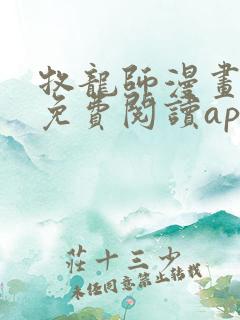 牧龍師漫畫
免費閱讀ap
莊十三少
未經同意禁止轉載